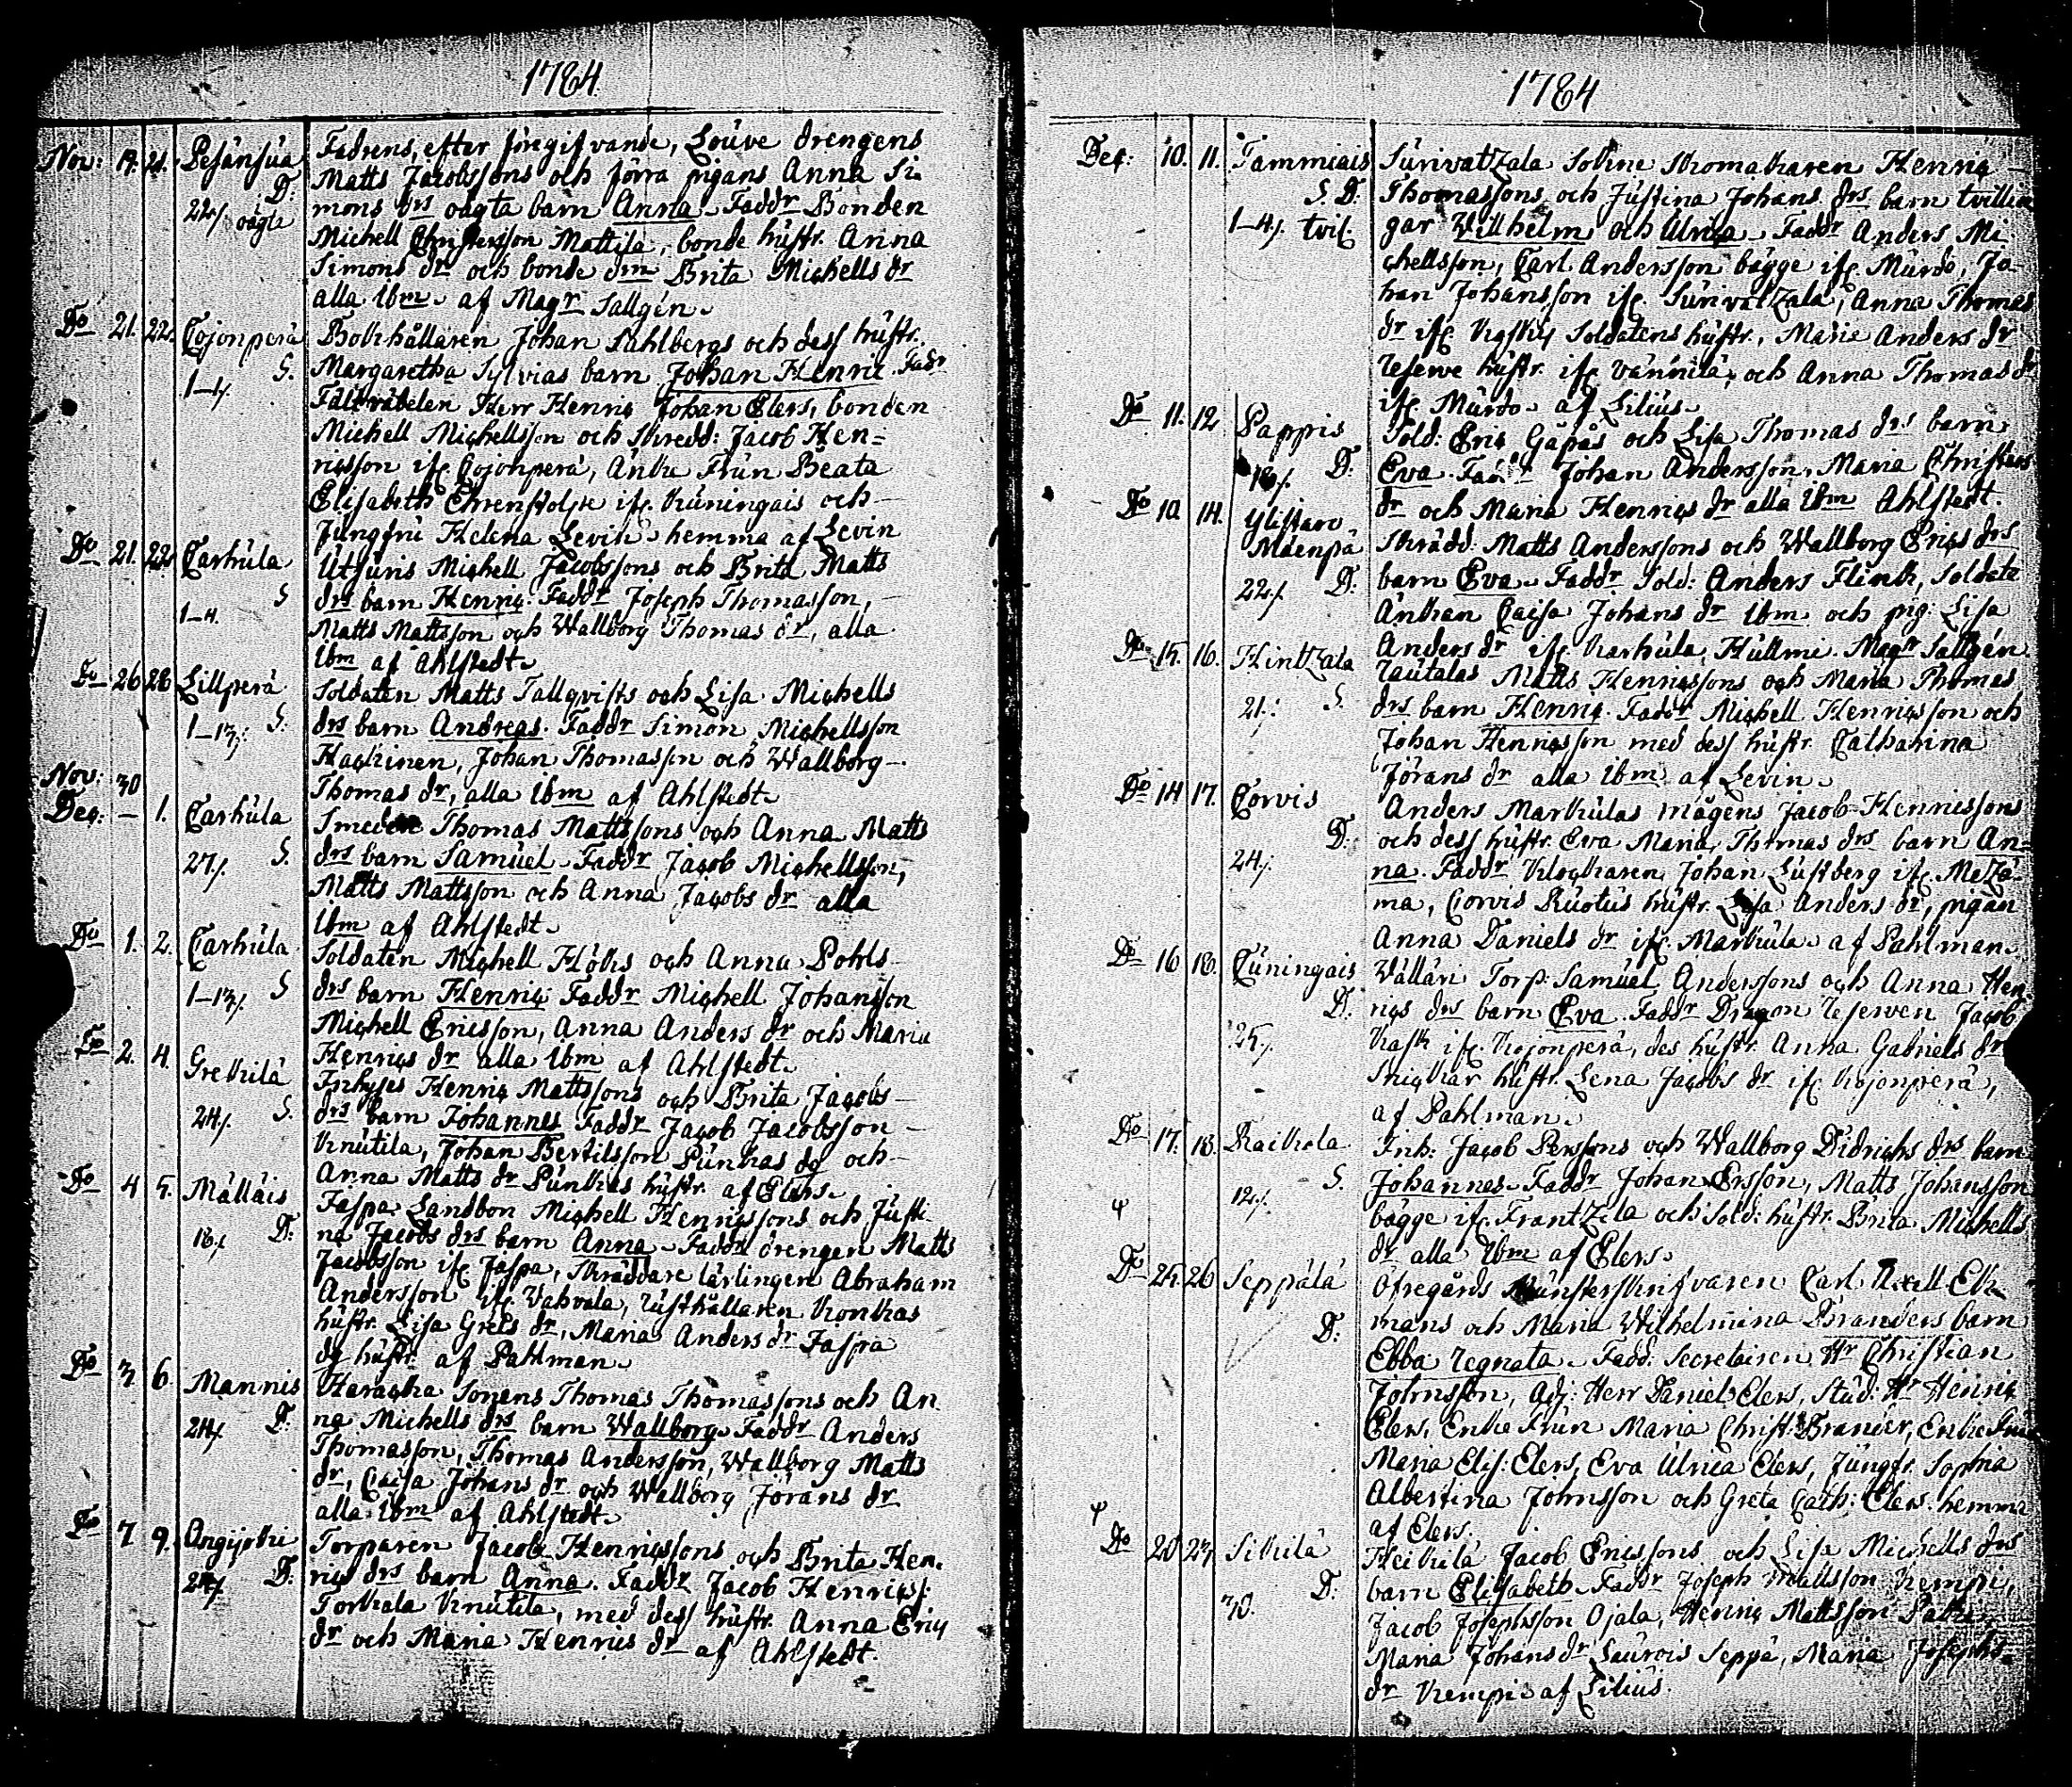 1784
Nov: 19. 21. Pesänsuu Fadrens, efter föregifvande, Louve drengens
D: Matts Jacobssons och förra pigans Anna Si
22/ oägta mons drs oägta barn Anna. Faddr Bonden
Michell Christersson Mattila, bonde hustr. Anna
Simons dr och bonde dm Brita Michells dr
alla ibm af Magr Sallgén.
Do 21. 22. Cojonperä Bolhållaren Johan Pahlbergs och dess hustr.
S. Margaretha Sylvias barn Johan Henric. Fadr
1-4/. Fältväbelen Herr Henric Johan Elers, bonden
Michell Michellsson och Skredd: Jacob Hen=
ricsson ifr. Cojonperä, Änke Frun Beata
Elisabeth Ehrenstolpe ifr. Kuningais och
Jungfru Helena Levin hemma af Levin
Do 21. 22. Carhula Utjuris Michell Jacobssons och Brita Matts
S drs barn Henric. Faddr Joseph Thomasson,
1-4. Matts Mattsson och Wallborg Thomas dr, alla
ibm af Ahlstedt.
Do 26 28 Lillperä Soldaten Matts Tallqvists och Lisa Michells
1-13/: S. drs barn Andreas. Faddr Simon Michellsson
Hackinen, Johan Thomasson och Wallborg
Nov: 30 Thomas dr, alla ibm af Ahlstedt.
Dec: - 1. Carhula Smeden Thomas Mattssons och Anna Matts
27/. S. drs barn Samuel. Faddr Jacob Michellsson,
Matts Mattsson och Anna Jacobs dr alla
ibm af Ahlstedt.
Do 1. 2. Carhula Soldaten Michell Höks och Anna Pohls
1-13/. S drs barn Henric. Faddr Michell Johansson
Michell Ericsson, Anna Anders dr och Maria
Do 2. 4. Grekilä Henrics dr alla ibm af Ahlstedt.
Inhyses Henric Mattssons och Brita Jacobs
24/. S. drs barn Johannes Faddr Jacob Jacobsson
Knutila, Johan Bertilsson Punkas dg och
Do 4 5. Mälläis Anna Matts dr Punkas hustr. af Elers.
Jaspa Landbon Michell Henricssons och Justi
18/. D: na Jacobs drs barn Anna. Faddr drengen Matts
Jacobsson ifr Jaspa, Skräddare lärlingen Abraham
Andersson ifr. Vahvala, rusthållaren Konkas
hustr. Lisa Grels dr, Maria Anders dr Jaspa
dg hustr. af Pahlman.
Do 3. 6. Mannis Haracka Sonens Thomas Thomassons och An
24/. D: na Michells drs barn Wallborg Faddr Anders
Thomasson, Thomas Andersson, Wallborg Matts
dr, Caisa Johans dr och Wallborg Jörans dr
alla ibm af Ahlstedt.
Do 7 9. Torparen Jacob Henricssons och Brita Hen.
24/. D: rics drs barn Anna. Faddr Jacob Henrics:
Torkala Knutila, med dess hustr. Anna Eric
dr och Maria Henrics dr af Ahlstedt.
1784
Dec: 10. 11. Tammiais Survatzala Sohne Skomakaren Henric
S. D: Thomassons och Justina Johans drs barn tvillin
1-4/. tvil. gar Willhelm och Ulrica. Faddr Anders Mi
chellsson, Carl Andersson bägge ifr. Murdo, Jo
han Johansson ifr. Survatzala, Anna Thomas
dr ifr. Soldatens hustr., Maria Anders dr
reserve hustr. ifr Vännilä, och Anna Thomas dr
ifr. Murdo. af Lilius.
Do 11. 12 Pappis Sold: Eric Gåpås och Lisa Thomas drs barn
18/. D: Eva. Faddr Johan Andersson, Maria Christers
dr och Maria Henrics dr alla ibm Ahlstedt.
Do 10 14. Ylistaro Skrädd. Matts Anderssons och Wallborg Erics drs
Mäenpä barn Eva. Faddr Sold: Anders Flink, Soldate
22/. D: Änkan Caisa Johans dr ibm och pig: Lisa
Anders dr ifr. Karhula, Huttmi. Magr Sallgén.
Do 15. 16. Hintzala Rautalas Matts Henricssons och Maria Thomas
21.: S. drs barn Henric. Faddr Michell Henricsson och
Johan Henricsson med dess hustr. Catharina
Jörans dr alla ibm af Levin.
Do 14 17. Corvis Anders Markulas mågens Jacob Henricssons
D: och dess hustr. Eva Maria Thomas drs barn An=
24/. na. Faddr Klockaren Johan Lustberg ifr. Mezä=
ma, Corvis Ruotus hustr. Lisa Anders dr, pigan
Anna Daniels dr ifr. Markula. af Pahlman.
Do 16 18. Cuningais Vällari Torp: Samuel Anderssons och Anna Hen
D: rics drs barn Eva. Faddr Dragon Reserven Jacob
25/. Rask ifr. Kojonperä, des hustr. Anna Gabriels dr
Snickar hustr. Lena Jacobs dr ifr Kojonperä,
af Pahlman.
Do 17. 18. Raikola Inh: Jacob Perssons och Wallborg Didrichs drs barn
12/. S. Johannes. Faddr Johan Ersson, Matts Johansson
bägge ifr. Frantzila och Sold: hustr. Brita Michells
dr alla ibm af Elers.
Do 25. 26 Seppälä Öfregårds Munsterskrifvaren Carl Axell Ek
D: mans och Maria Wilhelmina Branders barn
Ebba Regnata. Fadd. Secreteiren Hr Christian
Johnsson, Adj: Herr Daniel Elers, Stud: Hr Henric
Elers, Enke Frun Maria Christ: Brander, Enke Fru
Maria Elis: Elers, Eva Ulrica Elers, Jungfr. Sophia
Albertina Johnsson och Greta Cath: Elers. hemma
af Elers.
Do 20 27 Sikilä Heikilä Jacob Ericssons och Lisa Michells drs
30. D: barn Elisabeth. Faddr Joseph Mattsson Kempi,
Jacob Josephsson Ojala, Henric Mattsson
Maria Johans dr Saurois Seppä, Maria Josephs
dr Kempi af Lilius.